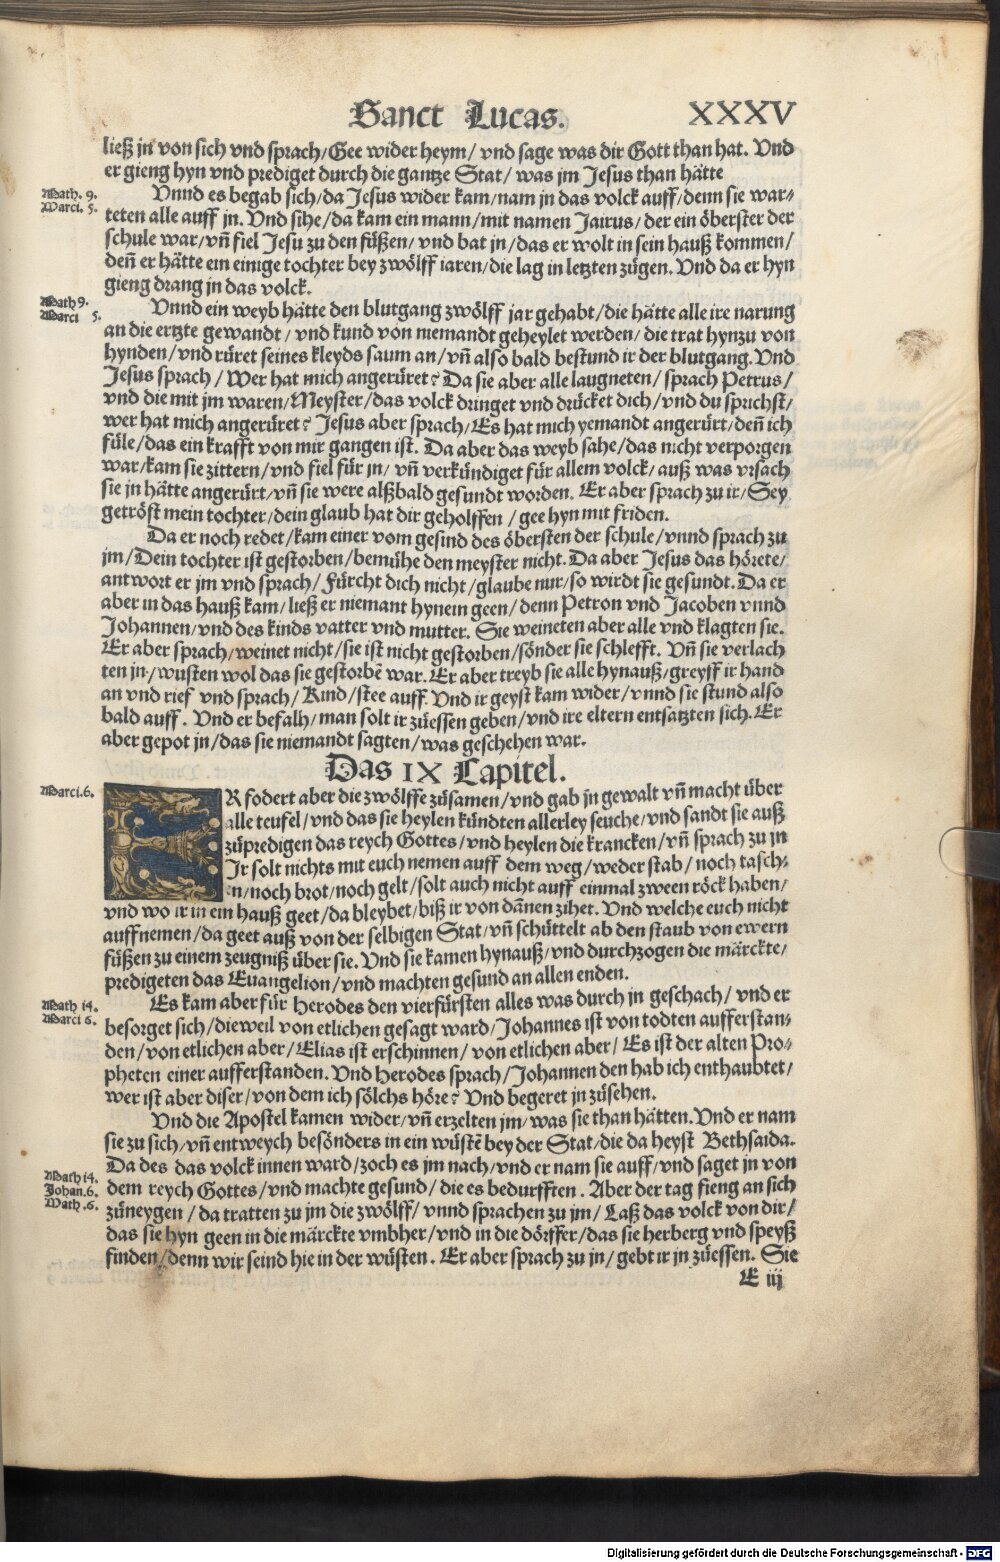 Sanct Lucas. XXXV
ließ jn von sich vnd sprach/Gee wider heym/ vnd sage was dir Gott than hat. Vnd
er gieng hyn vnd prediget durch die gantze Stat/ was jm Jesus than hätte
Math. 9.
Marci. 5.
Vnnd es begab sich/da Jesus wider kam/nam jn das volck auff/denn sie war⸗
teten alle auff jn. Vnd sihe/da kam ein mann/mit namen Jairus/der ein öberster der
schule war/vñ fiel Jesu zu den füßen/ vnd bat jn/das er wolt in sein hauß kommen/
deñ er hätte ein einige tochter bey zwölff iaren/die lag in letzten zügen. Vnd da er hyn
gieng drang jn das volck.
Math 9.
Marci 5.
Vnnd ein weyb hätte den blutgang zwölff jar gehabt/die hätte alle ire narung
an die ertzte gewandt/ vnd kund von niemandt geheylet werden/ die trat hynzu von
hynden/vnd rüret seines kleyds saum an/vñ also bald bestund ir der blutgang. Vnd
Jesus sprach/ Wer hat mich angerüret? Da sie aber alle laugneten/ sprach Petrus/
vnd die mit jm waren/Meyster/das volck dringet vnd drücket dich/vnd du sprichst/
wer hat mich angerüret? Jesus aber sprach/Es hat mich yemandt angerürt/deñ ich
füle/das ein krafft von mir gangen ist. Da aber das weyb sahe/das nicht verporgen
war/kam sie zittern/vnd fiel für jn/ vñ verkündiget für allem volck/ auß was vrsach
sie jn hätte angerürt/vñ sie were alßbald gesundt worden. Er aber sprach zu ir/Sey
getröst mein tochter/dein glaub hat dir geholffen/ gee hyn mit friden.
Da er noch redet/kam einer vom gesind des öbersten der schule/vnnd sprach zu
jm/Dein tochter ist gestorben/bemühe den meyster nicht. Da aber Jesus das hörete/
antwort er jm vnd sprach/ Fürcht dich nicht/glaube nur/so wirdt sie gesundt. Da er
aber in das hauß kam/ließ er niemant hynein geen/denn Petron vnd Jacoben vnnd
Johannen/vnd des kinds vatter vnd mutter. Sie weineten aber alle vnd klagten sie.
Er aber sprach/weinet nicht/sie ist nicht gestorben/sönder sie schlefft. Vñ sie verlach
ten jn/wusten wol das sie gestorbẽ war. Er aber treyb sie alle hynauß/greyff ir hand
an vnd rief vnd sprach/ Kind/stee auff. Vnd ir geyst kam wider/vnnd sie stund also
bald auff. Vnd er befalh/man solt ir zůessen geben/vnd ire eltern entsatzten sich. Er
aber gepot jn/das sie niemandt sagten/was geschehen war.
Das IX Capitel.
Marci.6.
ER fodert aber die zwölffe zůsamen/vnd gab jn gewalt vñ macht über
alle teufel/vnd das sie heylen kündten allerley seuche/vnd sandt sie auß
zůpredigen das reych Gottes/vnd heylen die krancken/vñ sprach zu jn
Ir solt nichts mit euch nemen auff dem weg/weder stab/noch tasch⸗
en/noch brot/noch gelt/solt auch nicht auff einmal zween röck haben/
vnd wo ir in ein hauß geet/da bleybet/biß ir von dãnen zihet. Vnd welche euch nicht
auffnemen/da geet auß von der selbigen Stat/vñ schüttelt ab den staub von ewern
füßen zu einem zeugniß über sie. Vnd sie kamen hynauß/vnd durchzogen die märckte/
predigeten das Euangelion/vnd machten gesund an allen enden.
Math 14.
Marci 6.
Es kam aber für Herodes den vierfürsten alles was durch jn geschach/ vnd er
besorget sich/dieweil von etlichen gesagt ward/Johannes ist von todten aufferstan⸗
den/von etlichen aber/Elias ist erschinnen/ von etlichen aber/ Es ist der alten Pro⸗
pheten einer aufferstanden. Vnd Herodes sprach/Johannen den hab ich enthaubtet/
wer ist aber diser/von dem ich sölchs höre? Vnd begeret jn zůsehen.
Vnd die Apostel kamen wider/vñ erzelten jm/was sie than hätten. Vnd er nam
sie zu sich/vñ entweych besönders in ein wüstẽ bey der Stat/die da heyst Bethsaida.
Da des das volck innen ward/zoch es jm nach/vnd er nam sie auff/vnd saget jn von
Math 14.
Johan.6.
Math.6.
dem reych Gottes/vnd machte gesund/ die es bedurfften. Aber der tag fieng an sich
zůneygen/da tratten zu jm die zwölff/ vnnd sprachen zu jm/ Laß das volck von dir/
das sie hyn geen in die märckte vmbher/vnd in die dörffer/das sie herberg vnd speyß
finden/denn wir seind hie in der wüsten. Er aber sprach zu jn/gebt ir jn zůessen. Sie
E iij
Digitalisierung gefördert durch die Deutsche Forschungsgemeinschaft - DFG